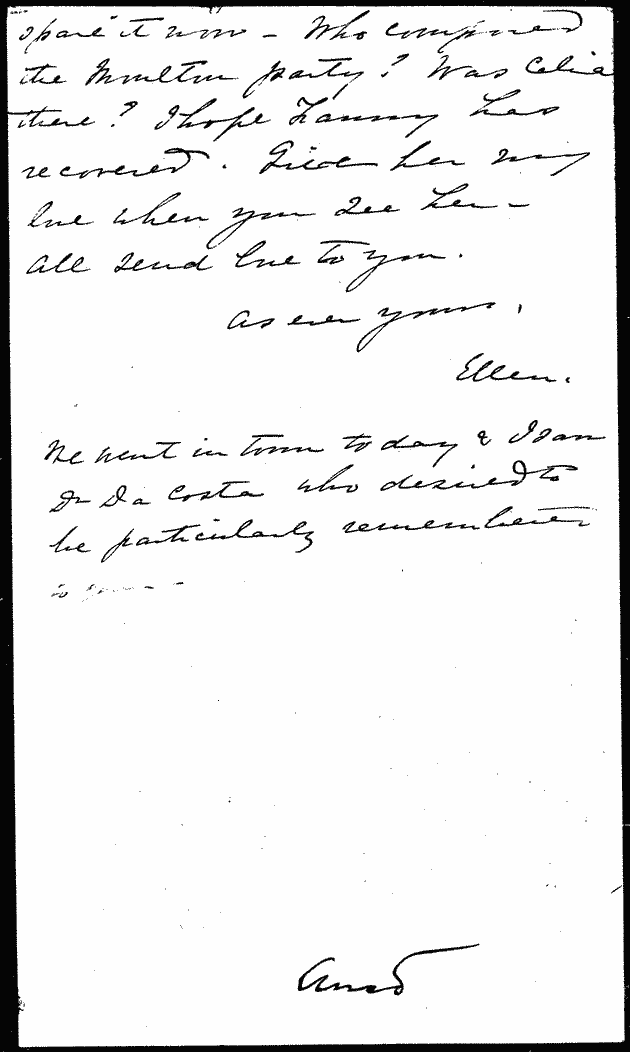 spare it now – Who composed
the Moulton party? Was Celia
there? I hope Fanny has
recovered. Give her my
love when you see her –
All send love to you.
As ever yours,
Ellen.
We went in town today & I saw
Dr Da Costa who desired to
be particularly remembered
to you –
Ansd